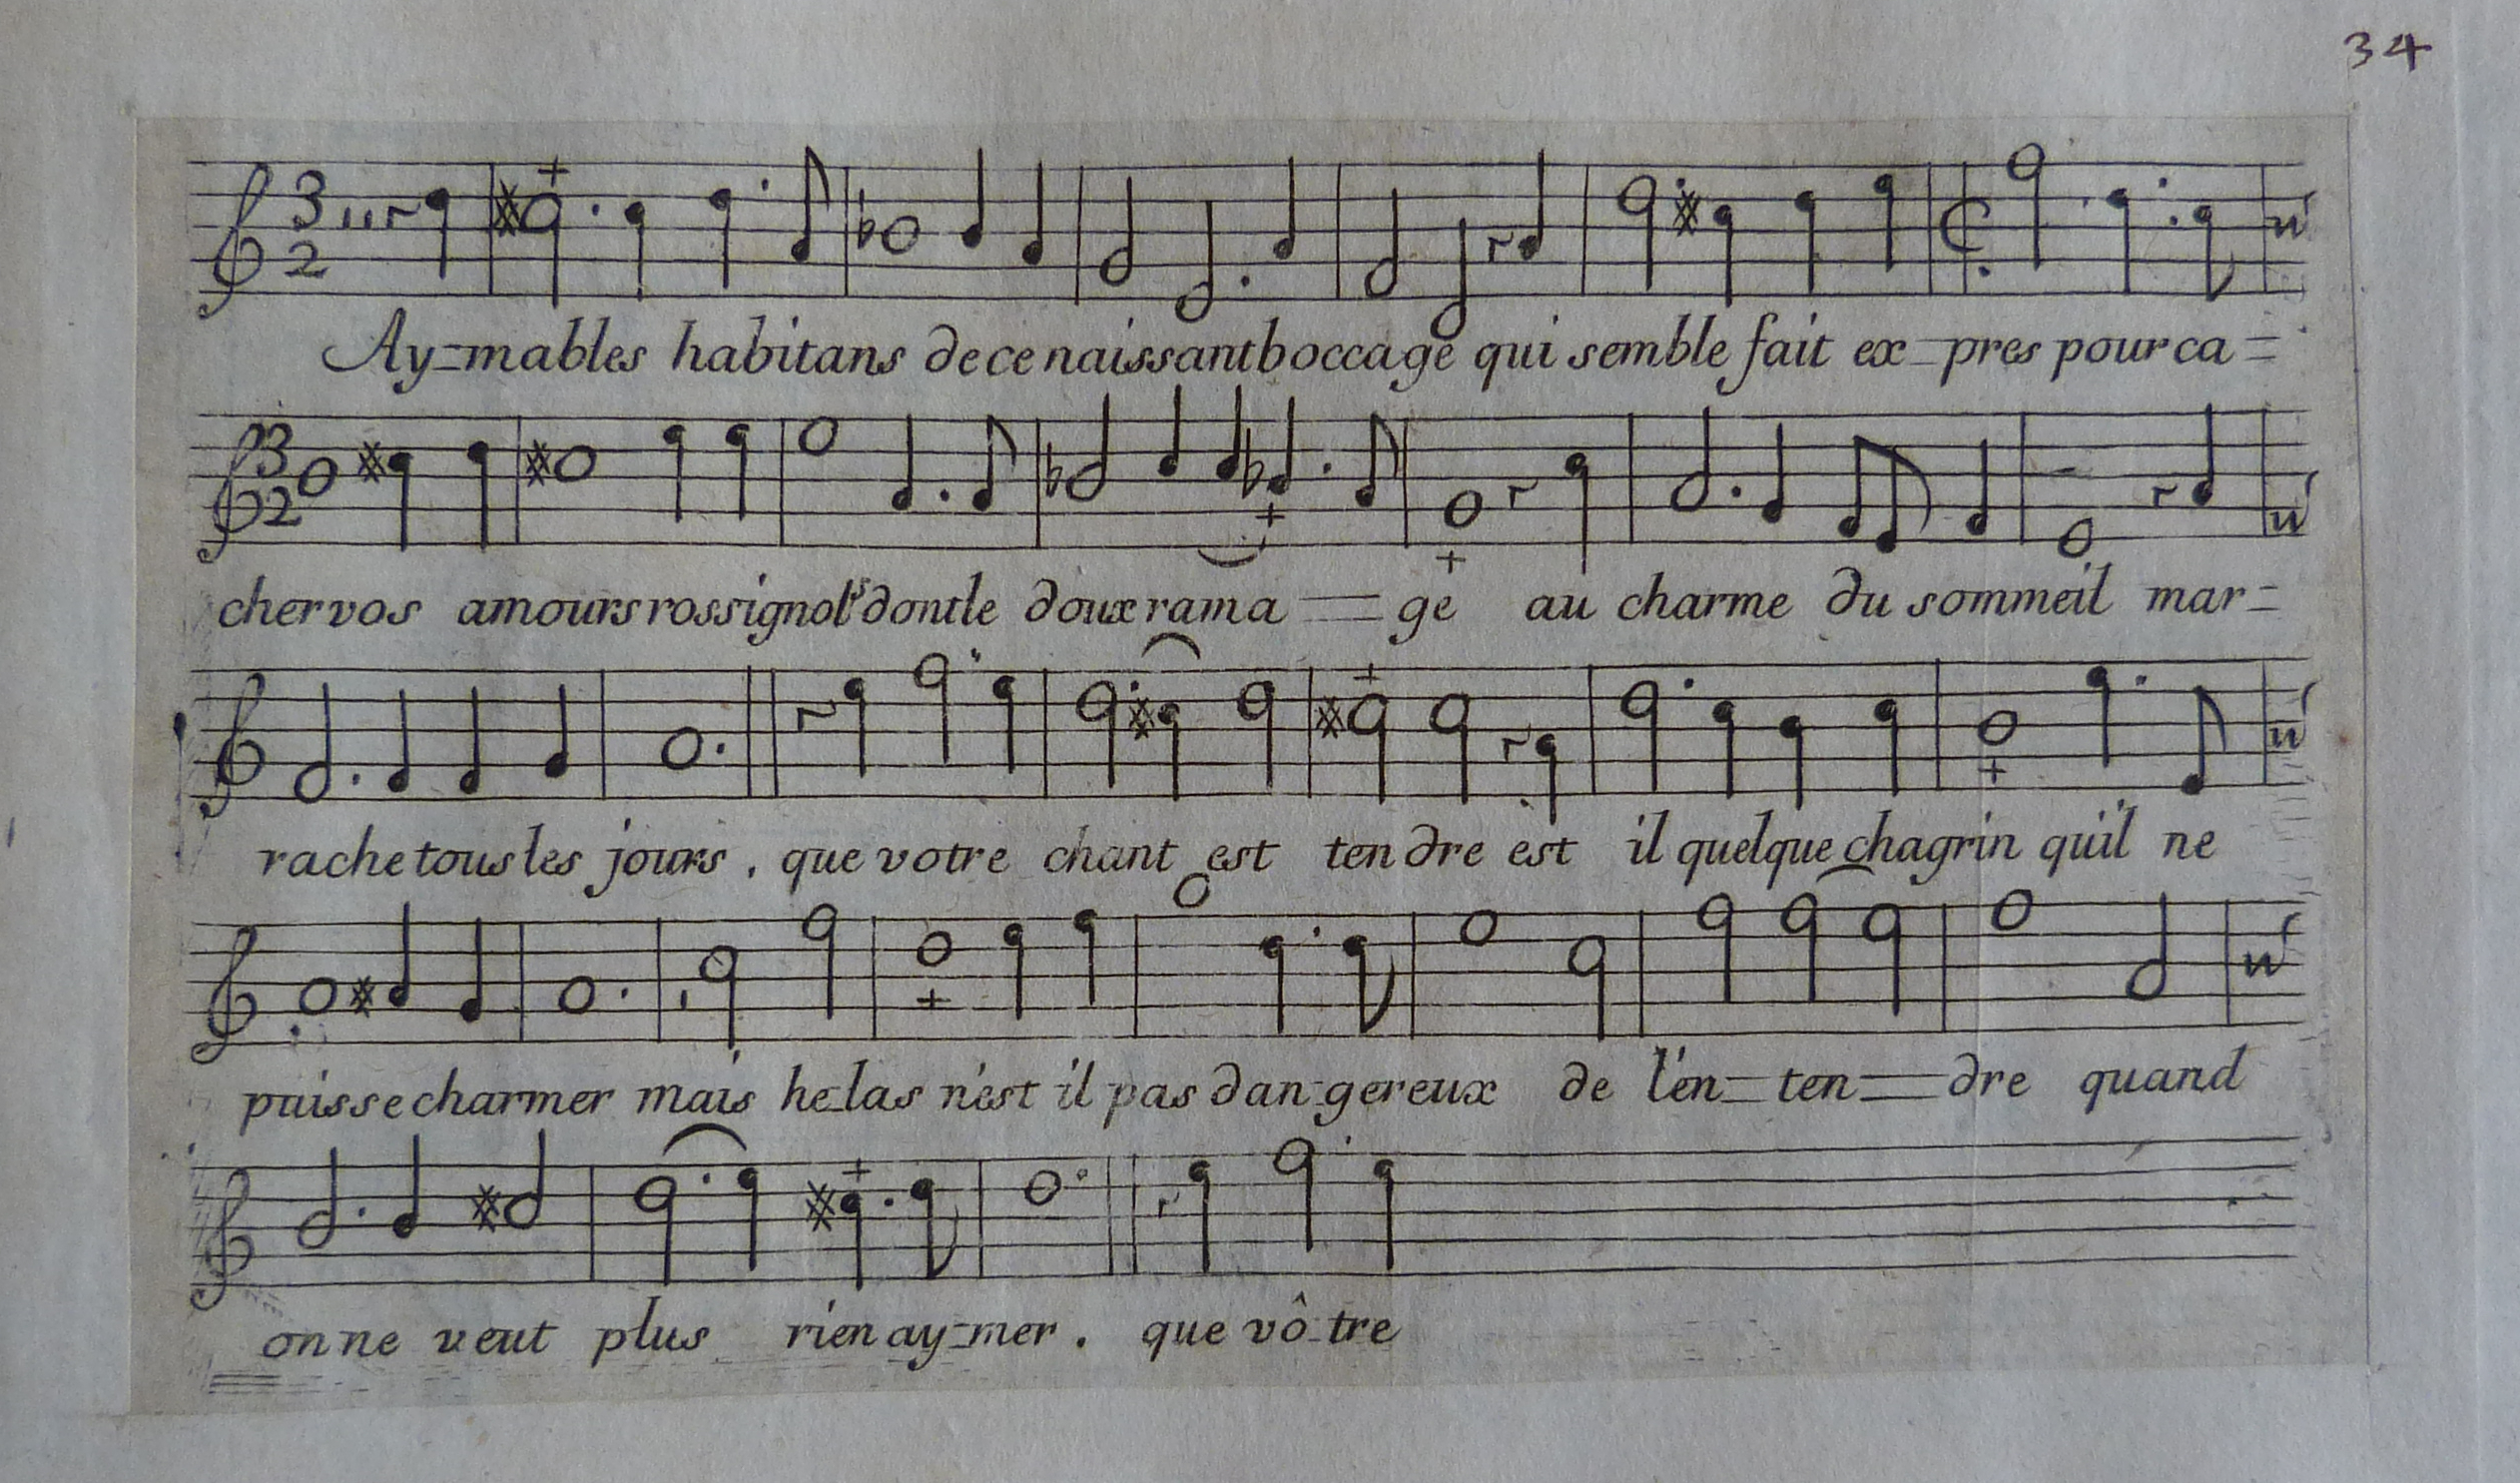 34
3
2
Ay=mables habitans de ce naissant boccage qui semble fait ex=pres pour ca=
3
2
cher vos amours rossignols dont le doux rama=ge au charme du sommeil mar=
rache tous les jours. que votre chant est tendre est il quelque chagrin qu'il ne
puisse charmer mais he-las n'est il pas dan-gereux de l'en=ten=dre quand
on ne veut plus rien ay=mer. que vô-tre